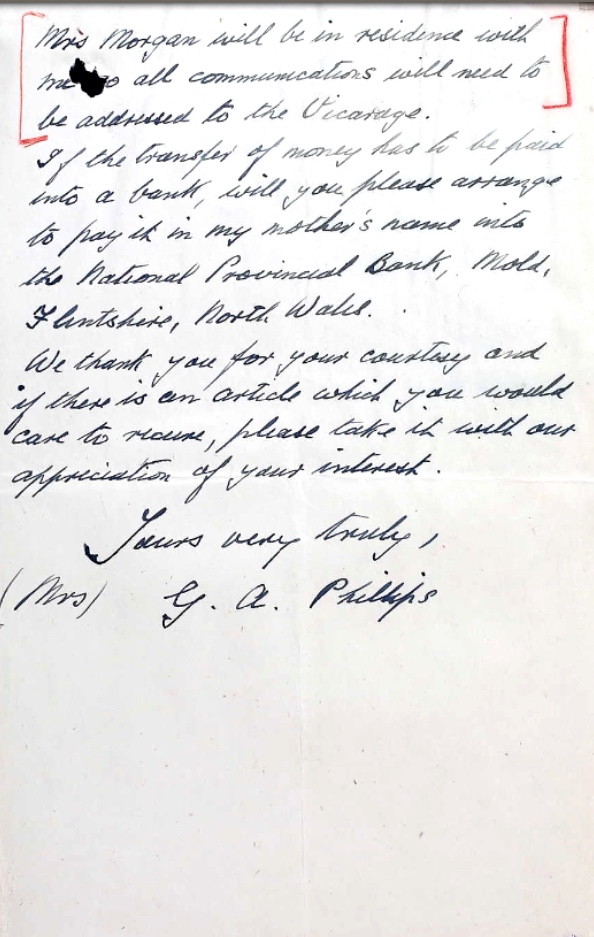 Mrs Morgan will be in residence with
me so all communications will need to
be addressed to the Vicarage.
If the transfer of money has to be paid
into a bank, will you please arrange
to pay it in my mother's name into
the National Provincial Bank, Mold,
Flintshire, North Wales.
We thank you for your courtesy and
if there is an article which you would
care to recure, please take it with our
appreciation of your interest.
Yours very truly,
(Mrs) G. A. Phillips